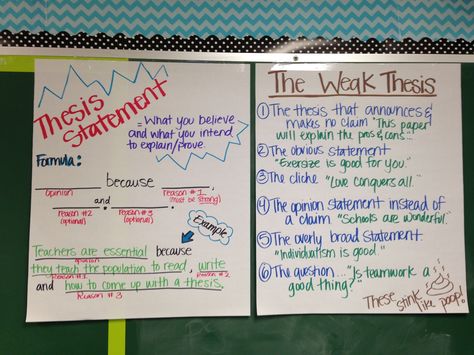 Thesis
Statement
- What you believe
and what you intend
to explain/prove.
Formula:
__________ because
opinion
__________, __________,
reason #1
(must be strong)
and
reason #2
(optional)
reason #3
(optional)
Example
Teachers are essential because
opinion
they teach the population to read, write
Reason #1
reason #2
and how to come up with a thesis.
Reason #3
The Weak Thesis
① The thesis that announces &
makes no claim "This paper
will explain the pros & cons..."
② The obvious statement
"Exersize is good for you."
③ The cliche "Love conquers all."
④ The opinion statement instead of
a claim "Schools are wonderful."
⑤ The overly broad statement
"Individualism is good"
⑥ The question... "Is teamwork a
good thing?"
These stink
like poop!